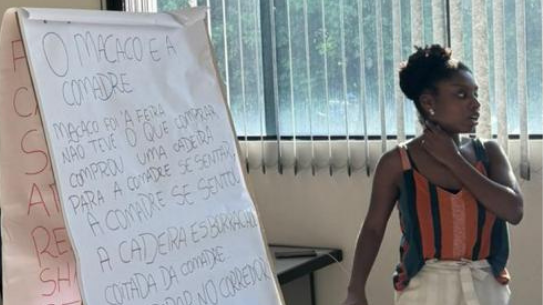 O MACACO E A
COMADRE
MACACO FOI À FEIRA
NÃO TEVE O QUE COMPRAR
COMPROU UMA CADEIRA
PARA A COMADRE SE SENTAR
A COMADRE SE SENTOU
A CADEIRA ESBORRACHOU
COITADA DA COMADRE...
PARAR NO CORREDOR